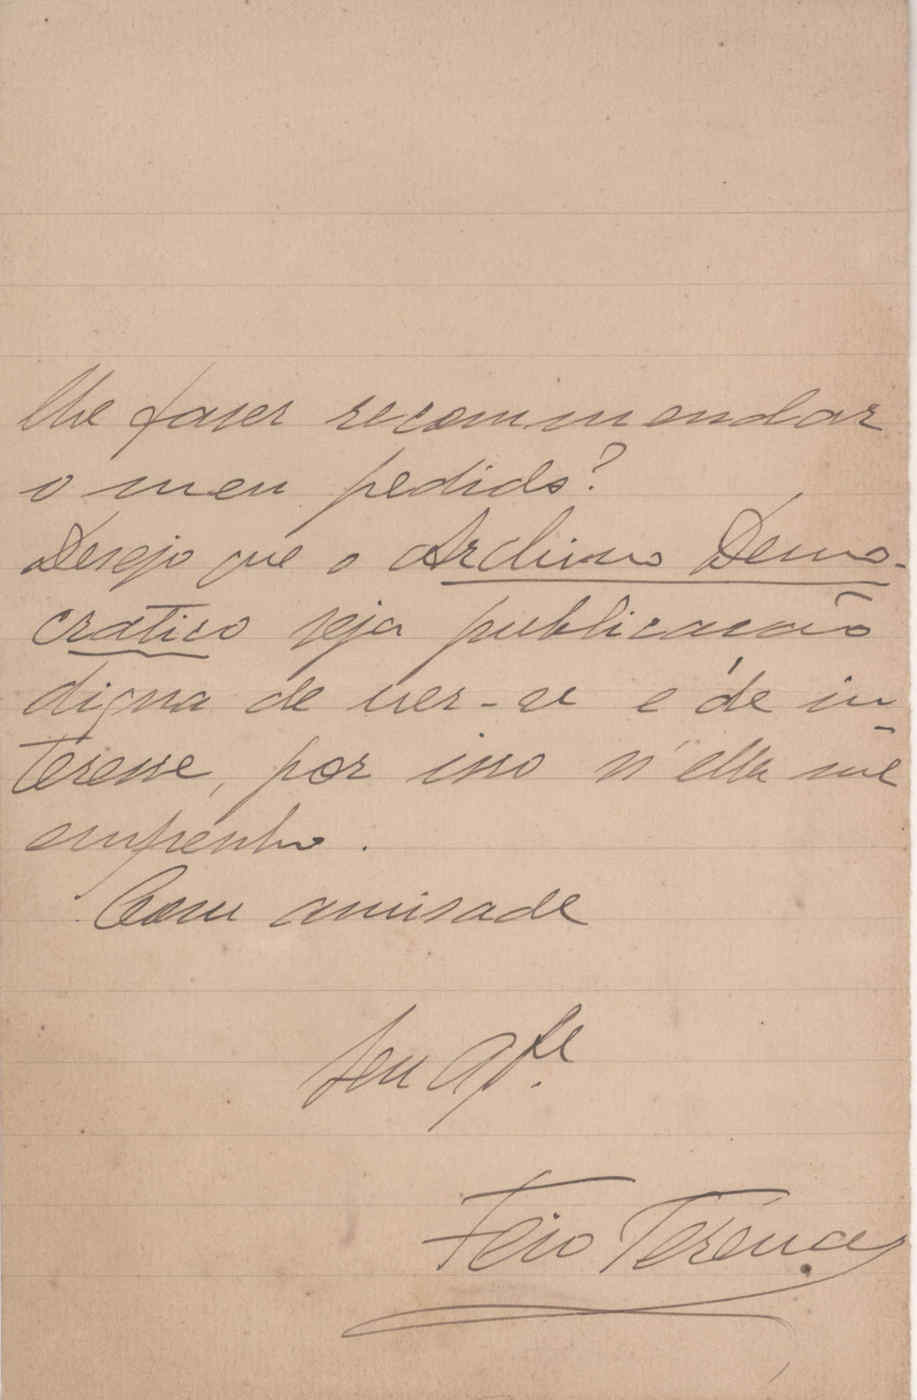 lhe fazer recommendar
o meu pedido?
Desejo que o Archivo Demo-
cratico seja publicacão
digna de ver-se e de in-
teresse, por isso n'ella me
empenho.
Com amisade
Seu
Feio Terenas